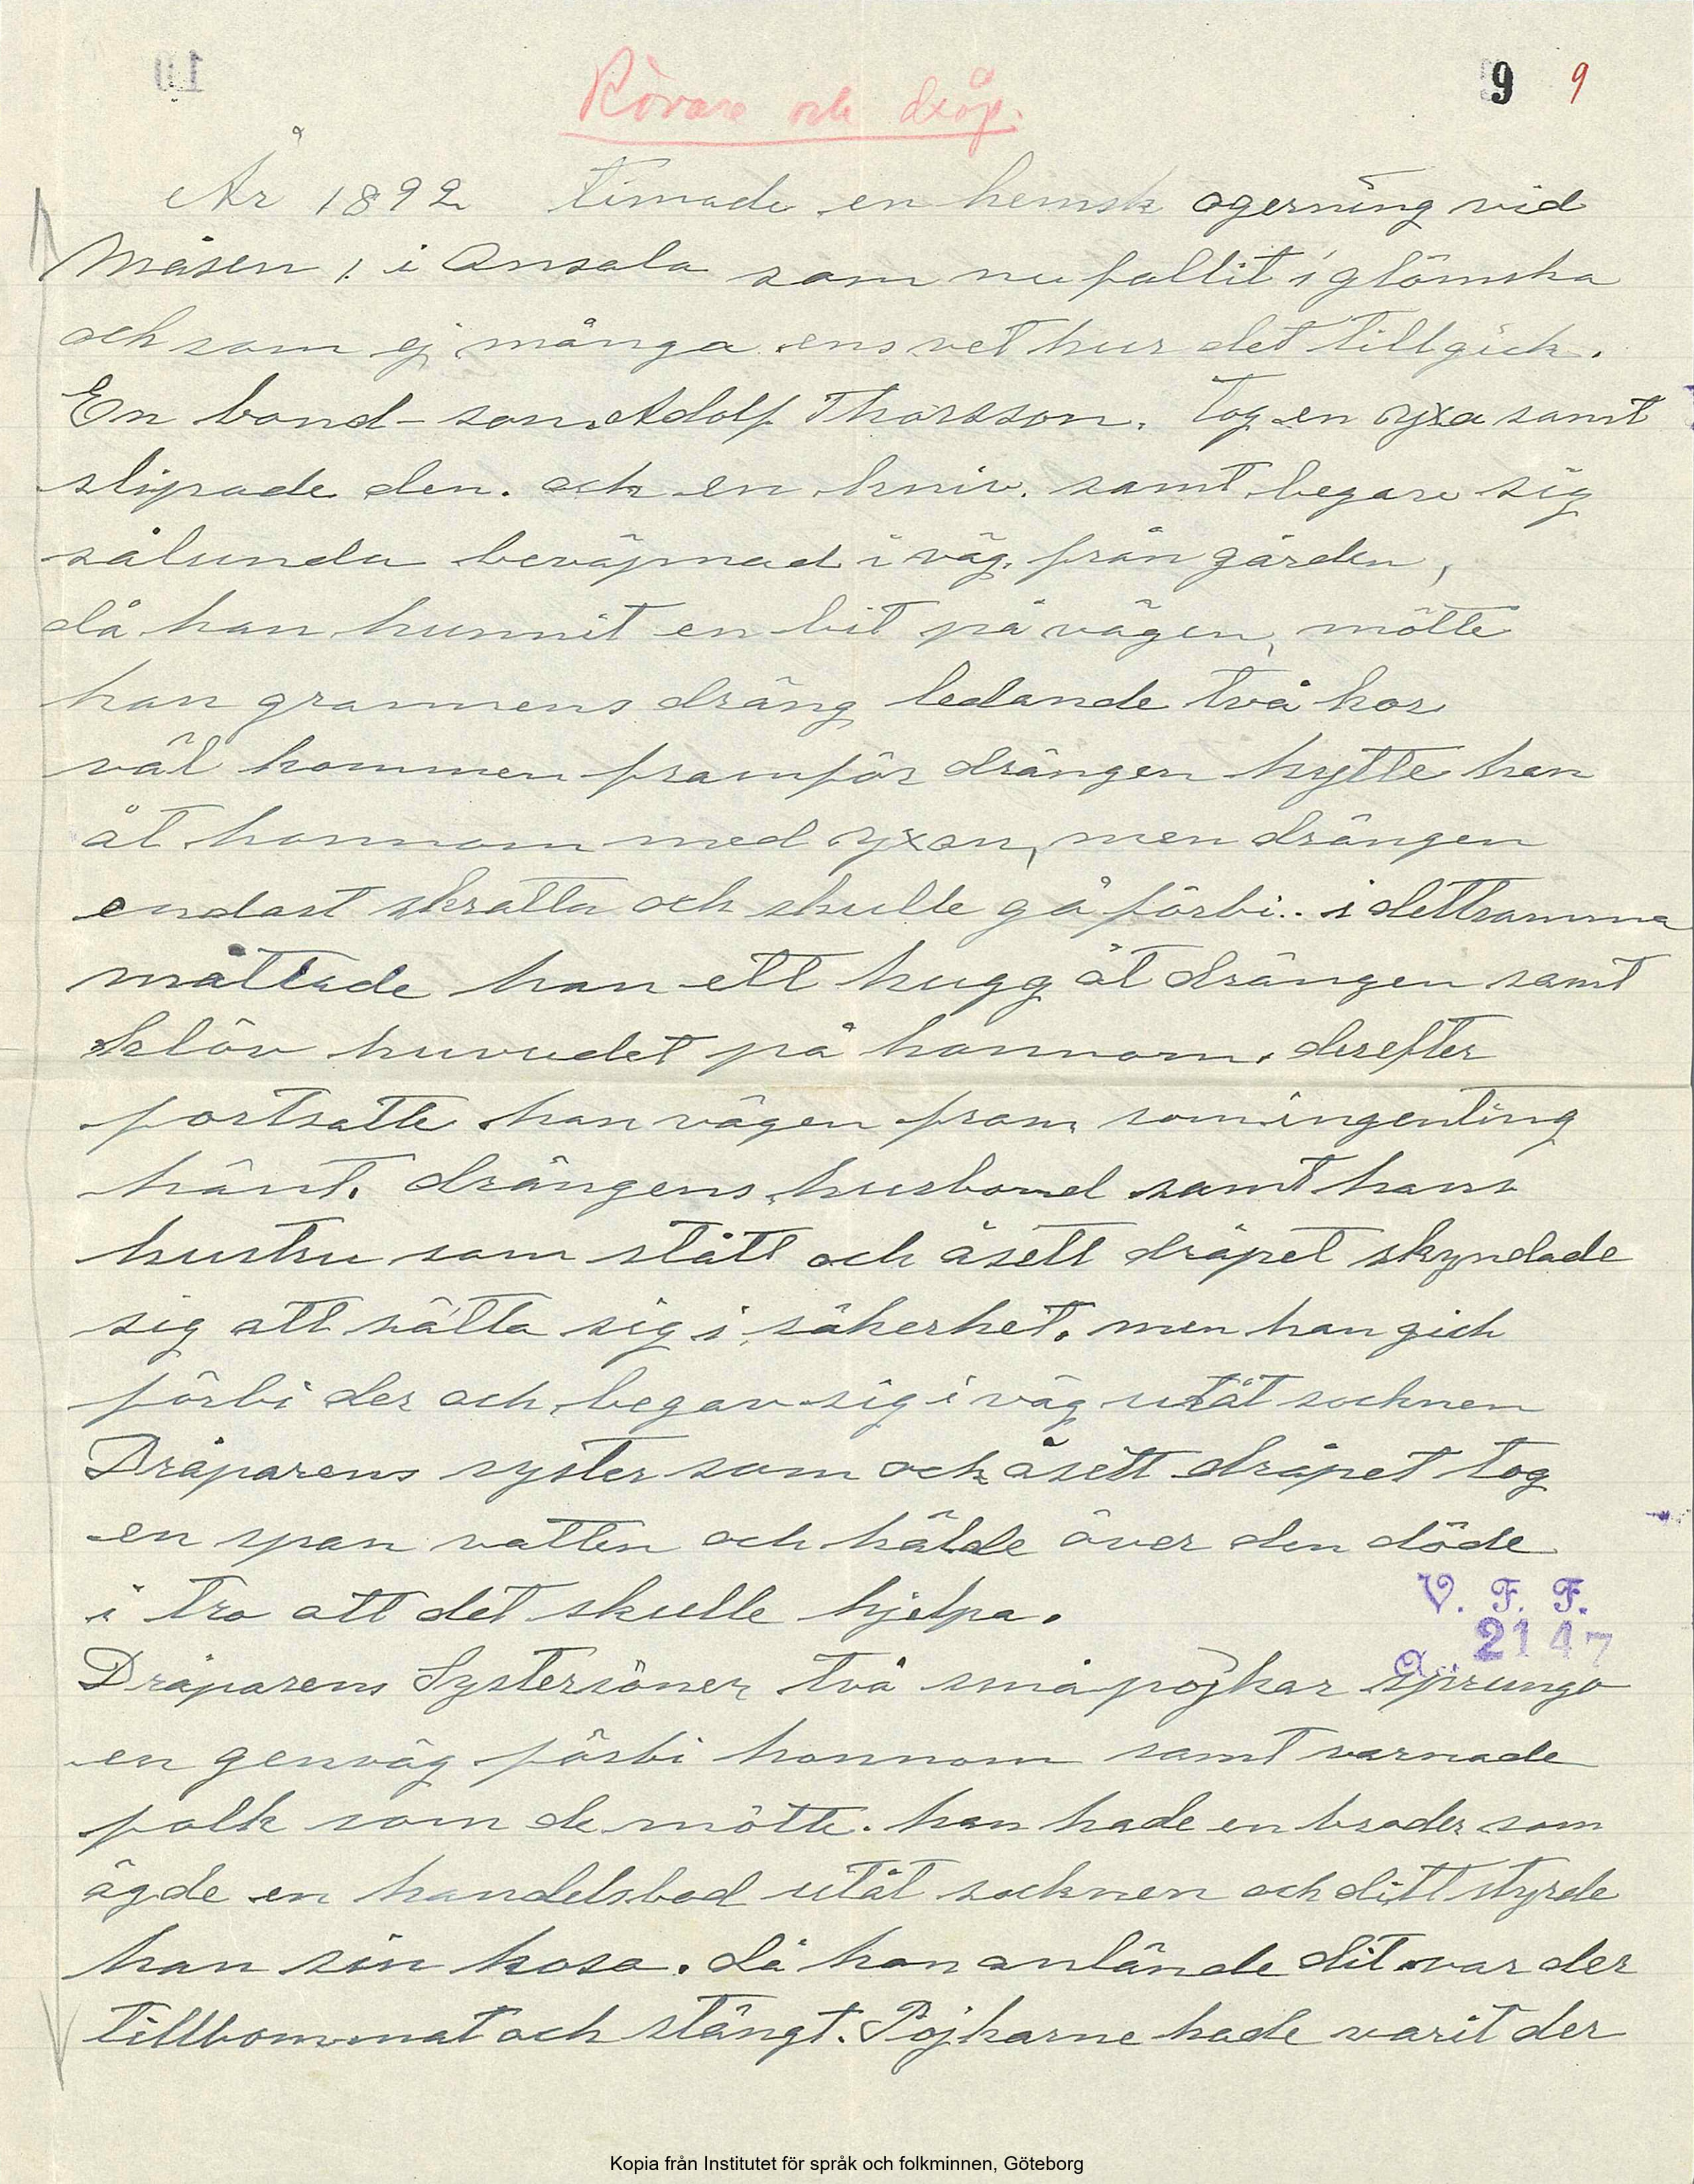 9 9
Rövare och dråp.
År 1892 timade en hemsk ogerning vid
Måsen 1. i Onsala som nu fallit i glömska
och som ej många ens vet hur det tillgick.
En bond-son Adolf Thorsson. tog en yxa samt
slipade den. och en kniv. samt begav sig
sålunda beväpnad i väg. från gården,
då han hunnit en bit på vägen, mötte
han grannens dräng ledande två kor
väl kommen framför drängen hytte han
åt honnom med yxan, men drängen
endast skratta och skulle gå förbi.. i dettsamma
måttade han ett hugg åt drängen samt
klöv huvudet på honnom. derefter
fortsatte han vägen fram som ingenting
hänt. drängens husbond samt hans
hustru som stått och åsett dråpet skyndade
sig att sätta sig i säkerhet. men han gick
förbi der och begav sig i väg utåt socknen
Dråparens syster som ock åsett dråpet tog
en span vatten och hälde över den döde
i tro att det skulle hjelpa.
V. F. F.
2147
Dråparens Systersöner två små pojkar sprungo
en genväg förbi honnom samt varnade
folk som de mötte. han hade en broder som
ägde en handelsbod utåt socknen och ditt styrde
han sin kosa. då han anlände dit var der
tillbommat och stängt. Pojkarne hade varit der
Kopia från Institutet för språk och folkminnen, Göteborg